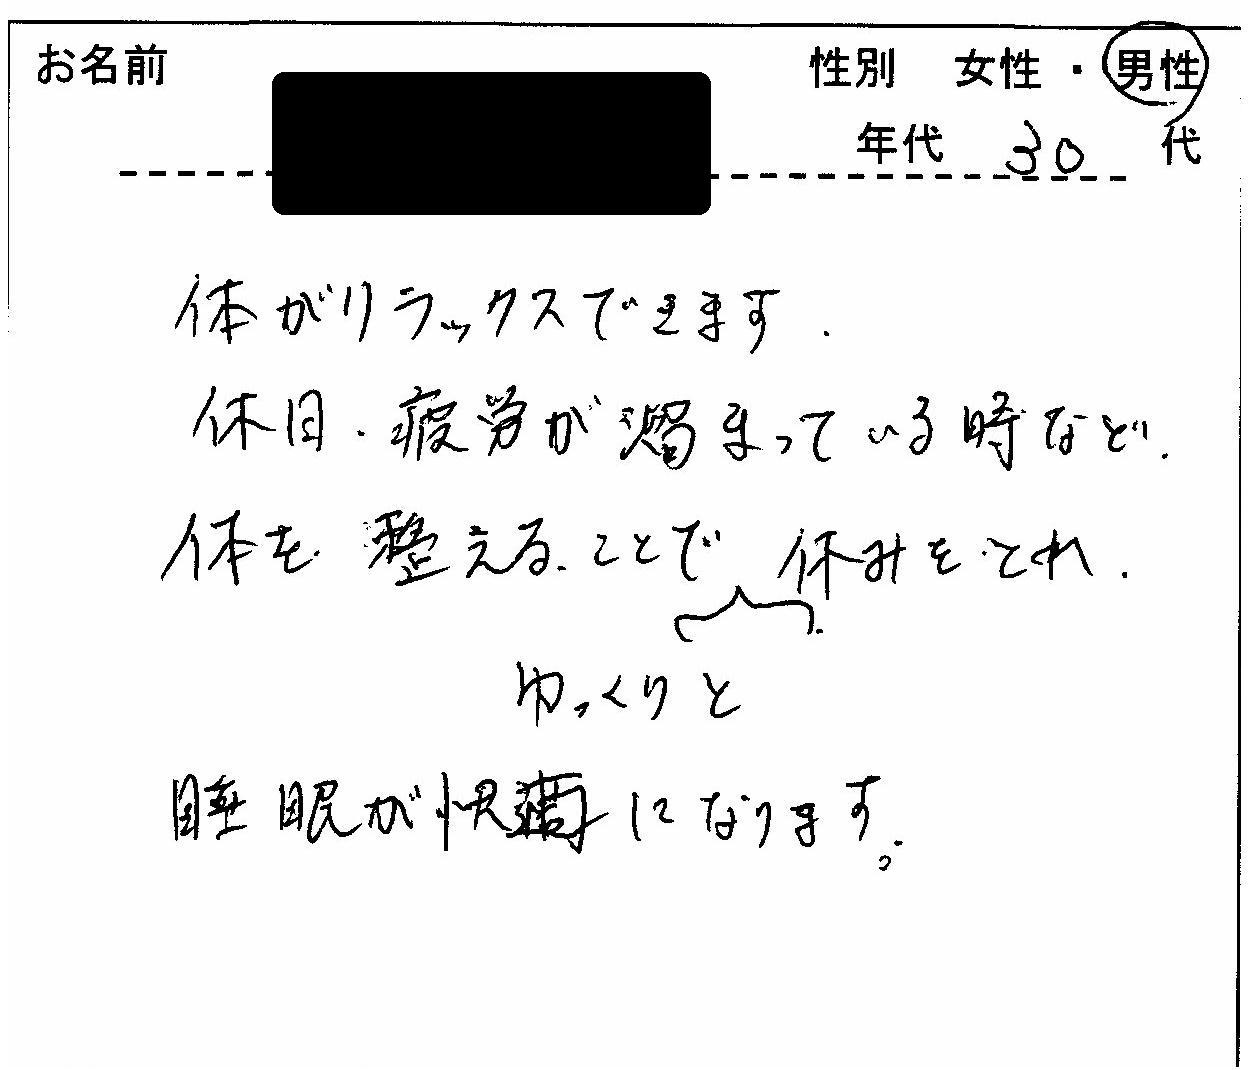 お名前 性別 女性・男性
年代 30 代
体がリラックスできます.
休日.疲労が溜まっている時など.
体を整えることで 休みをとれ.
ゆっくりと
睡眠が快適になります。